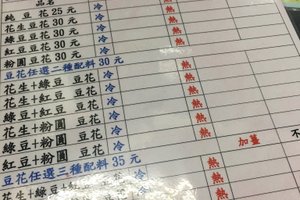 品名
純豆花25元 冷 熱
花生豆花30元 冷 熱
綠豆豆花30元 冷 熱
紅豆豆花30元 冷 熱
粉圓豆花30元 冷 熱
豆花任選二種配料30元
花生+綠豆 豆花 冷 熱
花生+紅豆 豆花 冷 熱
花生+粉圓 豆花 冷 熱
綠豆+紅豆 豆花 冷 熱
綠豆+粉圓 豆花 冷 熱
紅豆+粉圓 豆花 冷 熱 加薑 不
豆花任選三種配料35元
花生+綠豆+ 冷 熱